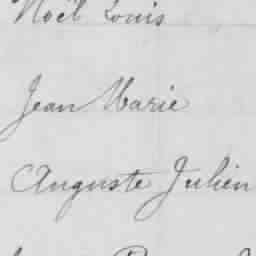 Noël Louis
Jean Marie
Auguste Julien